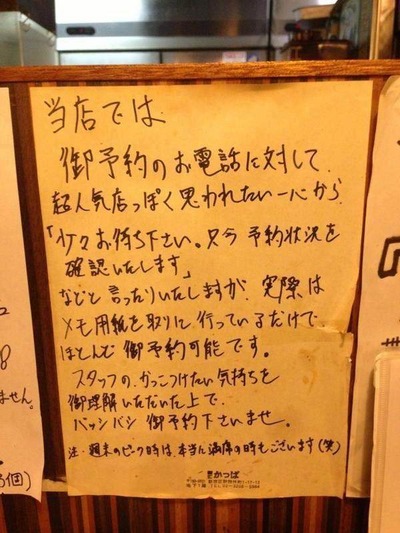 当店では
御予約のお電話に対して
超人気店っぽく思われたい一心から
「少々お待ち下さい。只今 予約状況を
確認いたします」
などと言ったりいたしますが、実際は
メモ用紙を取りに行っているだけで
ほとんど御予約可能です。
スタッフの、かっこつけたい気持ちを
御理解いただいた上で、
バッシバシ御予約下さいませ。
注・週末のピーク時は、本当に満席の時もございます(笑)
かっぱ
ません。
8
個)